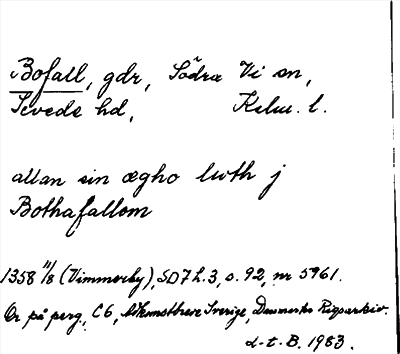 Bofall, gdr, Södra Vi sn,
Sevede hd, Kalm. l.
allan sin ægho luth j
Bothafallom
1358 11/8 (Vimmerby), SD 7 h. 3, s. 92, nr 5961.
Or på perg., C 6, Sverige, Danmarks Rigsarkiv.
L-t. B. 1983.